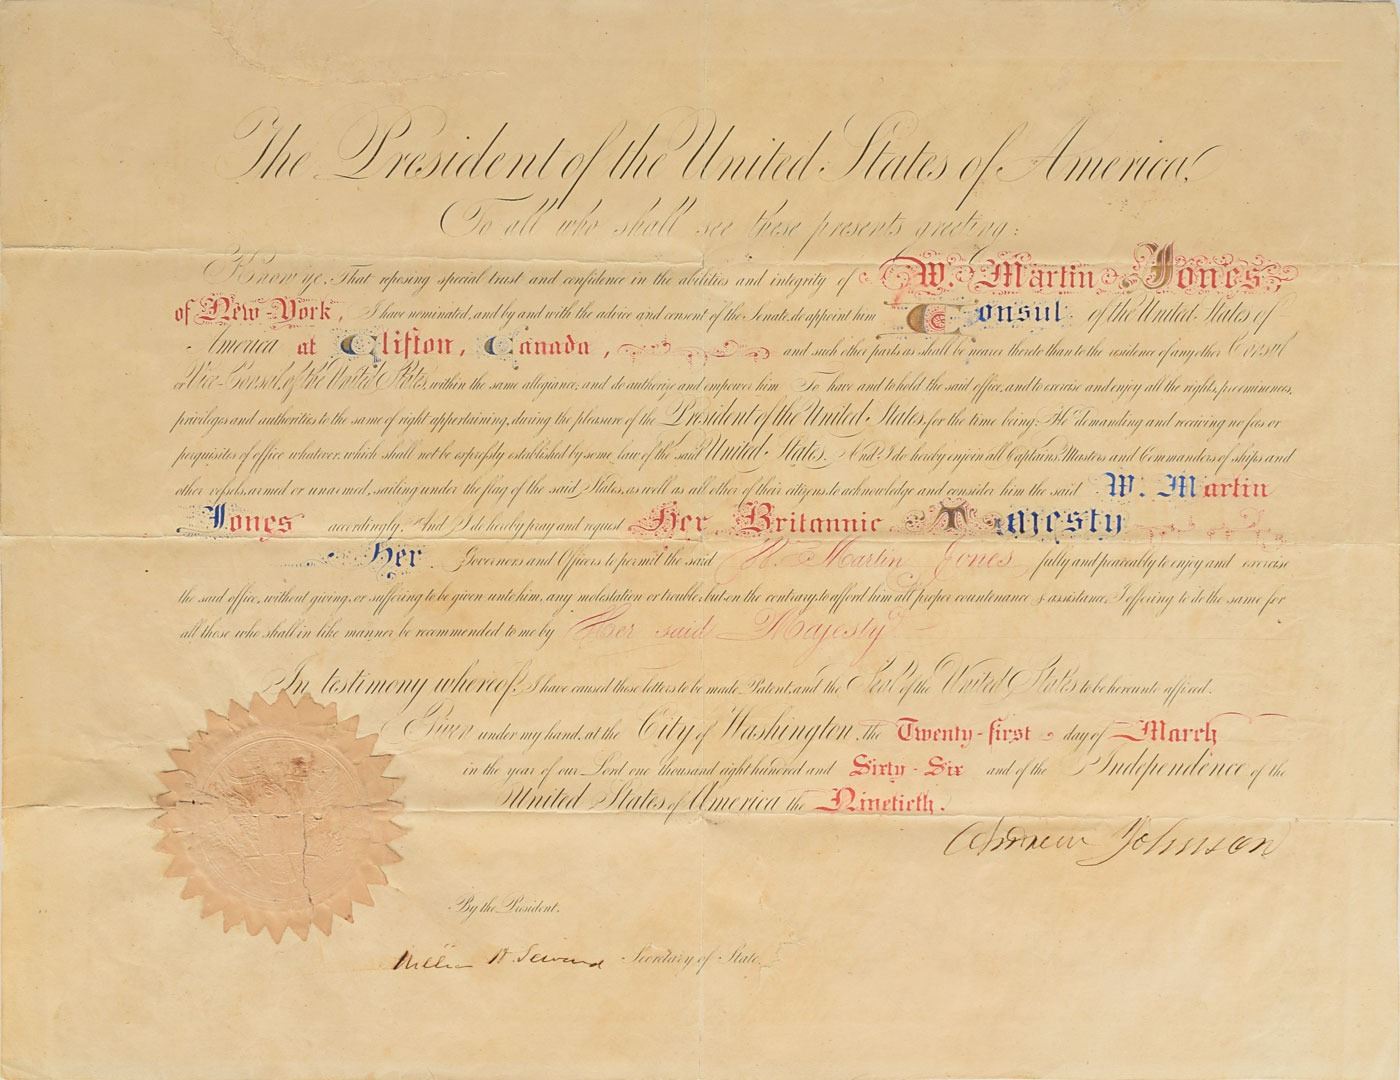 The President of the United States of America,
To all who shall see these presents greeting:
Know ye, That reposing special trust and confidence in the abilities and integrity of W. Martin Jones
of New-York, I have nominated, and by and with the advice and consent of the Senate, do appoint him Consul of the United States of
America at Clifton, Canada, and such other parts as shall be nearer thereto than to the residence of any other Consul
or Vice-Consul of the United States, within the same allegiance; and do authorize and empower him To have and to hold the said office, and to exercise and enjoy all the rights, preeminences,
privileges and authorities to the same of right appertaining, during the pleasure of the President of the United States, for the time being; He demanding and receiving no fees or
perquisites of office whatever, which shall not be expressly established by some law of the said United States. And I do hereby enjoin all Captains, Masters and Commanders of ships and
other vessels, armed or unarmed, sailing under the flag of the said States, as well as all other of their citizens, to acknowledge and consider him the said W. Martin
Jones accordingly. And I do hereby pray and request Her Britannic Majesty
Her Governors and Officers to permit the said W. Martin Jones fully and peaceably to enjoy and exercise
the said office, without giving, or suffering to be given unto him, any molestation or trouble; but on the contrary, to afford him all proper countenance & assistance; I offering to do the same for
all those who shall in like manner be recommended to me by Her said Majesty
In testimony whereof, I have caused these letters to be made Patent, and the Seal of the United States to be hereunto affixed.
Given under my hand, at the City of Washington, the Twenty-first day of March
in the year of our Lord one thousand eight hundred and Sixty-Six and of the Independence of the
United States of America the Ninetieth.
Andrew Johnson
By the President,
William H. Seward Secretary of State.